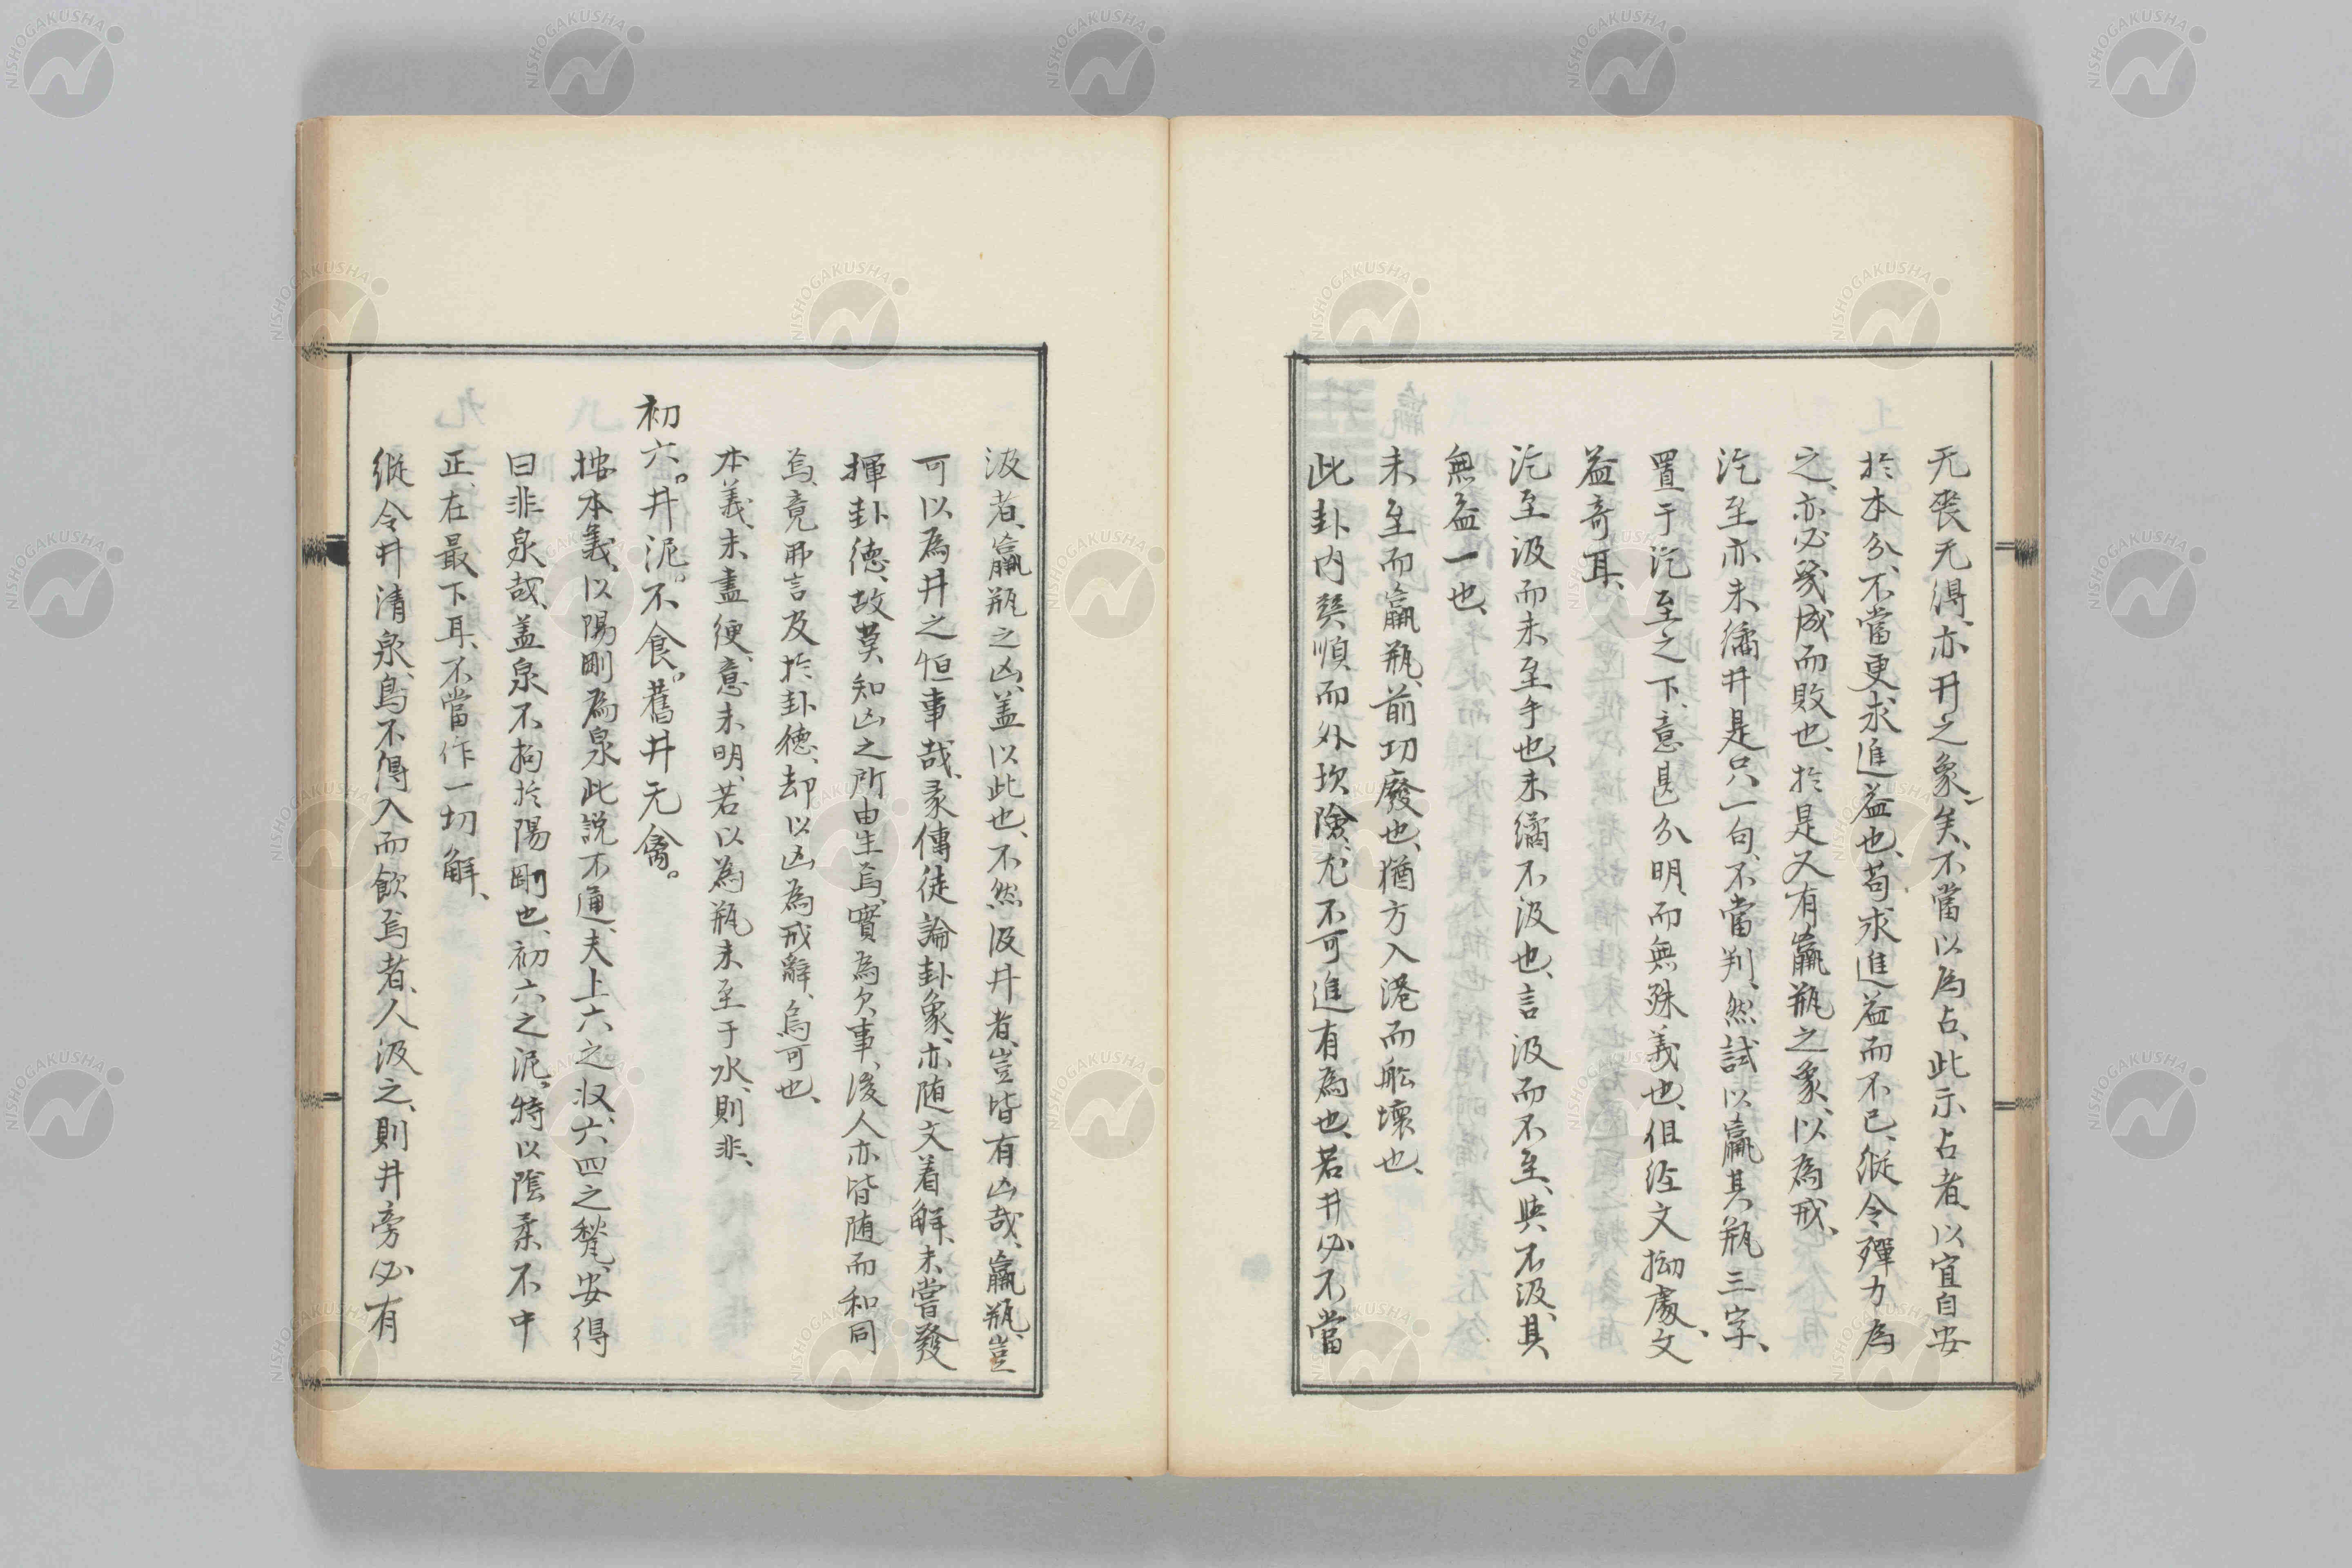 无喪无得、亦井之象矣、不當以為占、此示占者、以宜自安
於本分、不當更求進益也、苟求進益而不已、縱令殫力為
之、亦必幾成而敗也、於是又有羸瓶之象、以為戒、
汔至亦未繘井是只一句、不當判、然試以羸其瓶三字、
置于汔至之下、意甚分明、而無殊義也、但經文拗處、文
益奇耳、
汔至汲而未至乎也、未繘不汲也、言汲而不至、與不汲、其
無益一也、
未至而羸瓶、前功廢也、猶方入港而舩壞也、
此卦内巽順而外坎險、尤不可進有為也、若井必不當
汲者、羸瓶之凶、蓋以此也、不然汲井者、豈皆有凶哉、羸瓶、豈
可以為井之恒事哉、彖傳徒論卦象、亦随文着解、未嘗發
揮卦德、故莫知凶之所由生焉、實為欠事、後人亦皆随而和同
焉、竟弗言及於卦德、却以凶為戒辭、烏可也、
本義、未盡綆、意未明、若以為瓶未至于水、則非、
初六。井泥。不食。舊井无禽。
按本義、以陽剛為泉此説不通、夫上六之収、六四之甃、安得
曰非泉哉、蓋泉不拘於陽剛也、初六之泥、特以陰柔不中
正、在最下耳、不當作一切解、
縱令井清泉、鳥不得入而飲焉者、人汲之、則井旁必有
NISHOGAKUSHA